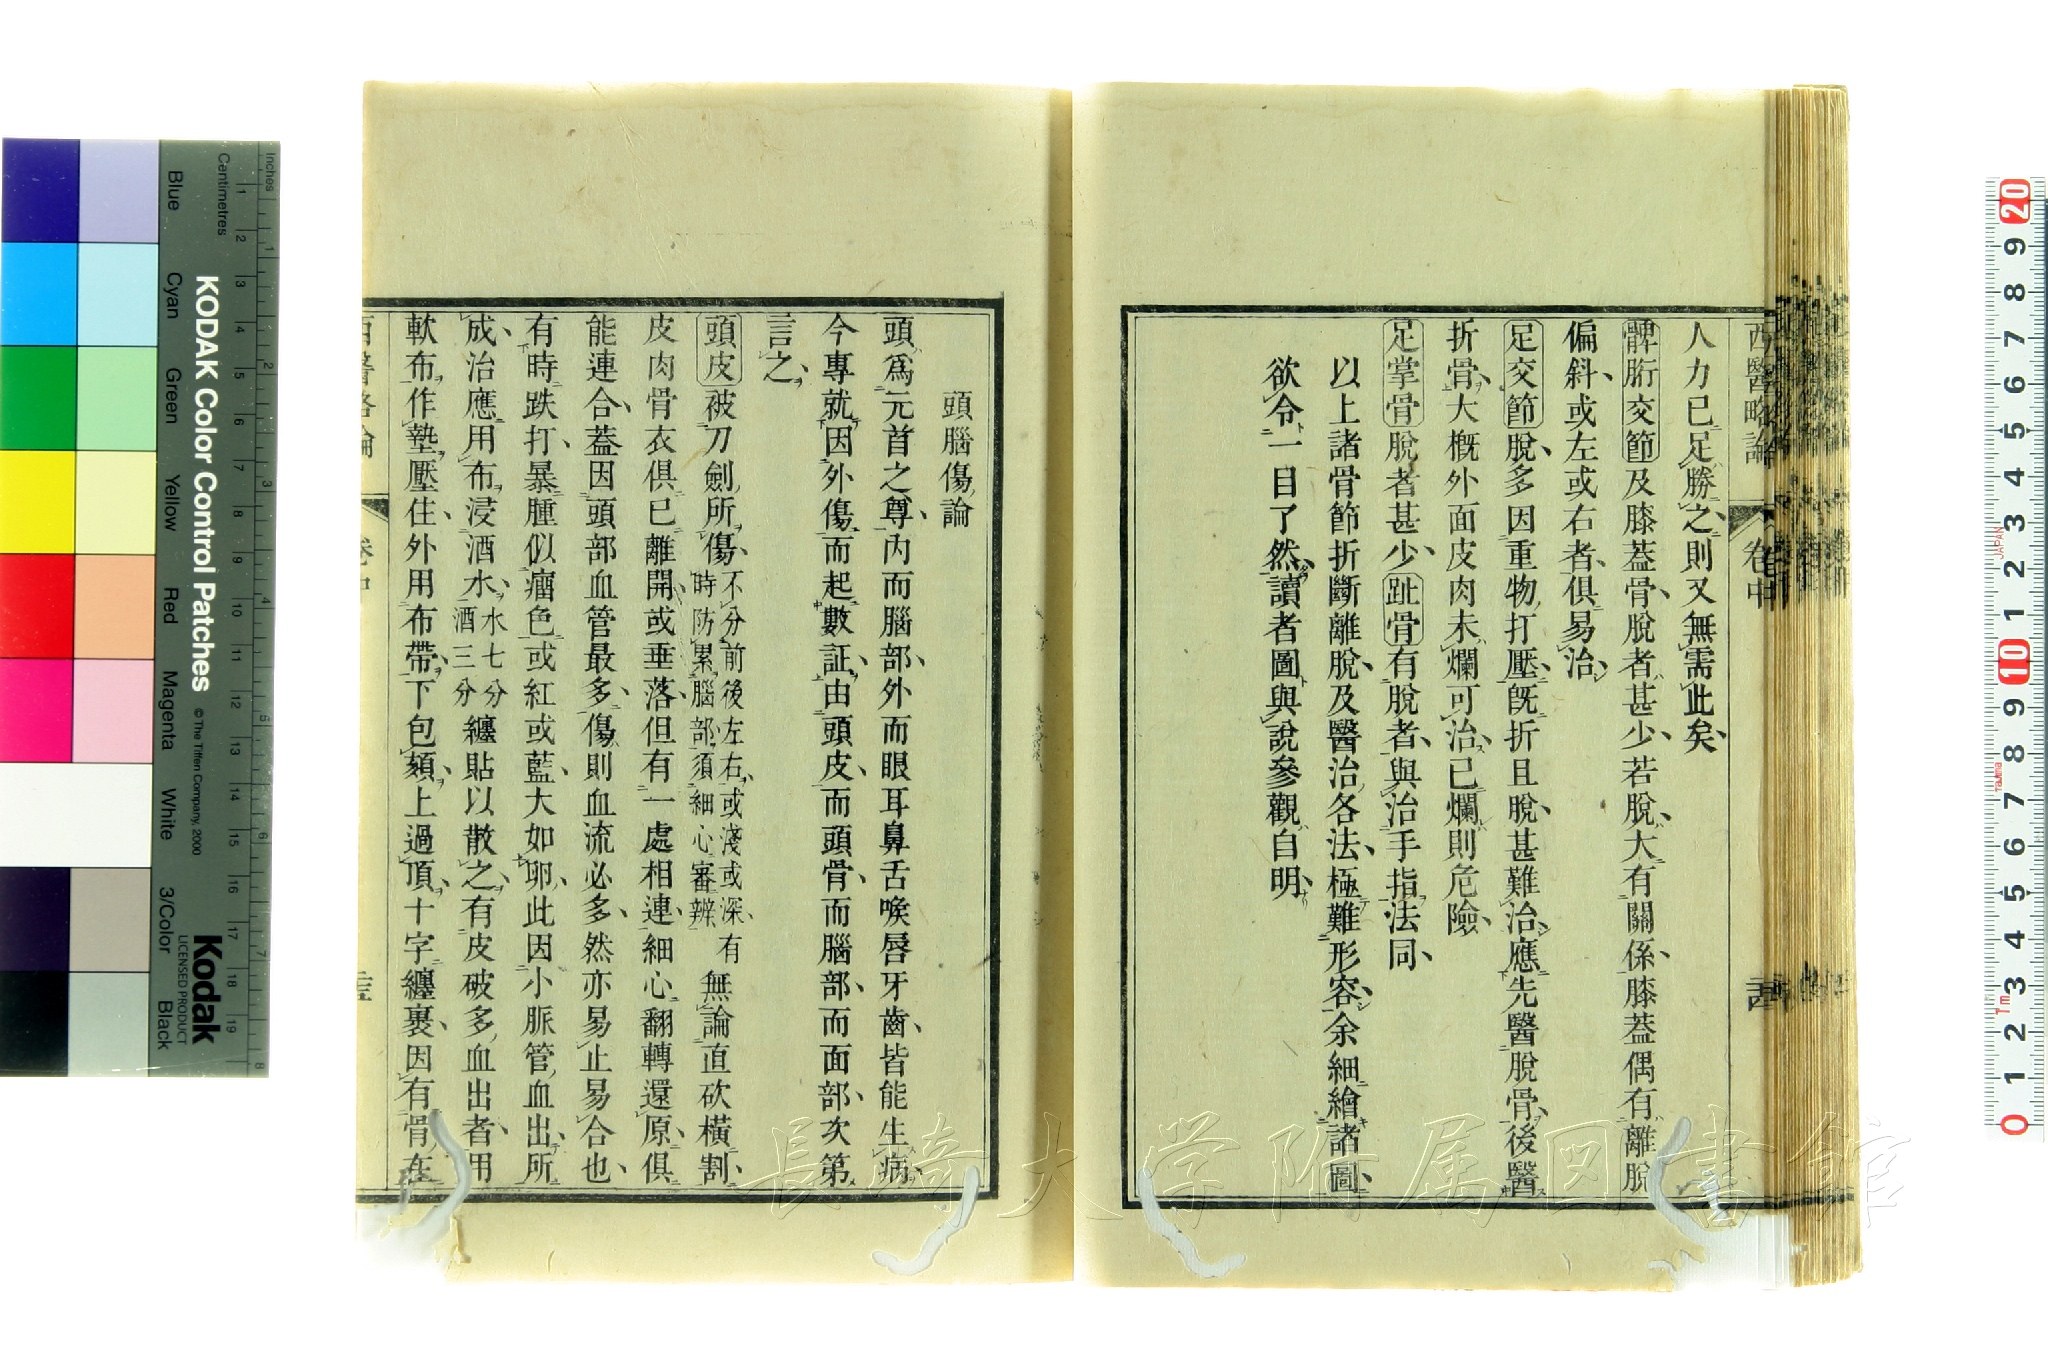 西醫略論
卷中
人力已足勝之、則又無需此矣、
髀胻交節及膝蓋骨、脫者甚少、若脫、大有關係、膝蓋偶有離脫
偏斜、或左或右者、俱易治、
足交節脫、多因重物打壓、旣折且脫、甚難治、應先醫脫骨、後醫
折骨、大槪外面皮肉未爛可治、已爛則危險、
足掌骨脫者甚少、趾骨有脫者、與治手指法同、
以上諸骨節折斷離脫、及醫治各法、極難形容、余細繪諸圖、
欲令一目了然、讀者圖與說參觀自明、
頭腦傷論
頭爲元首之尊、內而腦部、外而眼耳鼻舌喉唇牙齒、皆能生病、
今專就因外傷而起數証、由頭皮、而頭骨、而腦部、而面部、次第
言之、
頭皮被刀劍所傷、不分前後左右、或淺或深、有時防累腦部、須細心審辨、無論直砍橫割、
皮肉骨衣俱已離開、或垂落、但有一處相連、細心翻轉還原、俱
能連合、蓋因頭部血管最多、傷則血流必多、然亦易止易合也、
有時跌打、暴腫似瘤、色或紅或藍、大如卵、此因小脈管血出、所
成、治應用布、浸酒水、水七分酒三分纏貼以散之、有皮破多血出者、用
軟布作墊、壓住、外用布帶、下包頦、上過頂、十字纏裹、因有骨在
西醫略論
卷中
KODAK Color Control Patches
© The Tiffen Company, 2000
Kodak
LICENSED PRODUCT
Inches
Centimetres
Blue
Cyan
Green
Yellow
Red
Magenta
White
3/Color
Black
1 2 3 4 5 6 7 8 9 10 11 12 13 14 15 16 17 18 19
1 2 3 4 5 6 7 8
20 9 8 7 6 5 4 3 2 1 10 9 8 7 6 5 4 3 2 1 0
JAPAN
長崎大学附属図書館